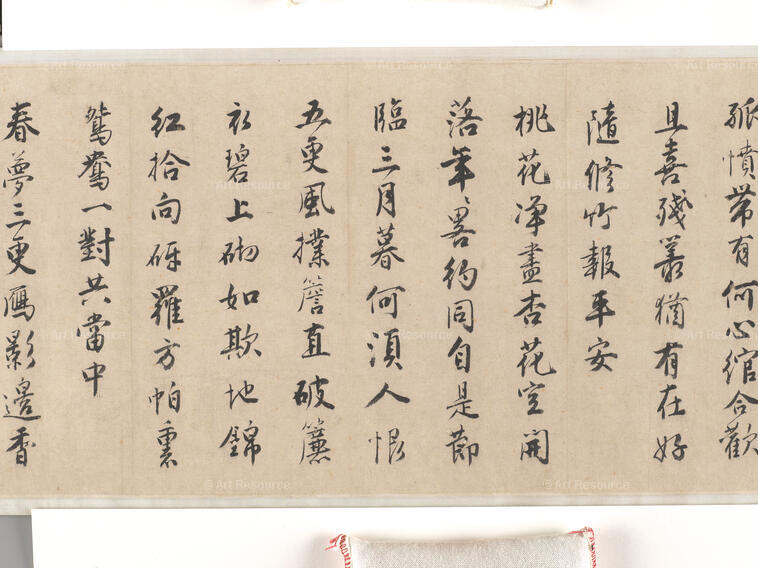 孤憤帶有何心綰合歡
且喜殘叢猶有在好
隨修竹報平安
桃花淨盡杏花空開
落年〻畧約同自是節
臨三月暮何須人恨
五更風撲簷直破簾
衣碧上砌如欺地錦
紅拾向砑羅方帕裹
鴛鴦一對共當中
春夢三更鴈影邊香
© Art Resource